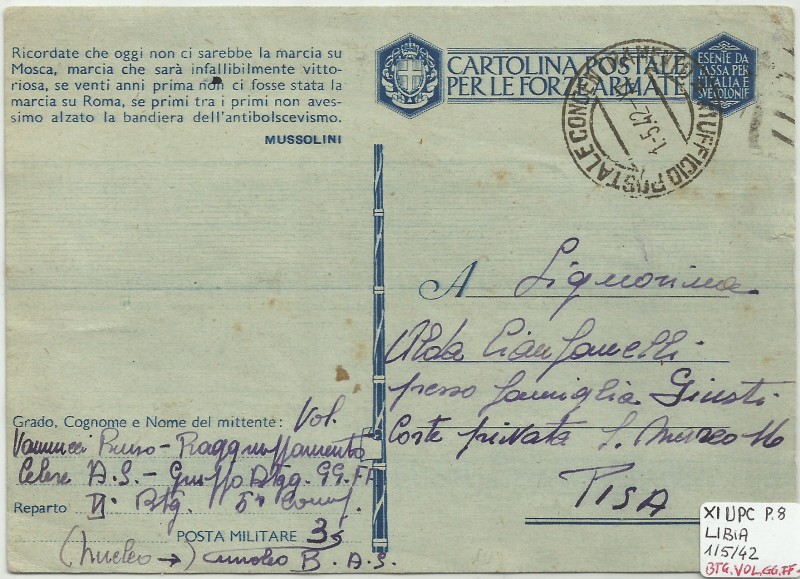 Ricordate che oggi non ci sarebbe la marcia su
Mosca, marcia che sarà infallibilmente vitto-
riosa, se venti anni prima non ci fosse stata la
marcia su Roma, se primi tra i primi non aves-
simo alzato la bandiera dell'antibolscevismo.
MUSSOLINI
CARTOLINA POSTALE
PER LE FORZE ARMATE
ESENTE DA
TASSA PER
L'ITALIA E
SVE COLONIE
UFFICIO POSTALE
1-5-42-X
A Signorina
Alda Cianfanelli
presso famiglia Giusti
Corte privata S. Marco 16
PISA
Grado, Cognome e Nome del mittente: Vol.
Vannucci Bruno - Raggruppamento
Celere A.S. - Gruppo Btgg. GG.FF
Reparto II° Btg. 5ª Comp.
POSTA MILITARE 35
(Nucleo →) nucleo B. A.S.
XI UPC P.8
LIBIA
1/5/42
BTG.VOL.GG.FF.